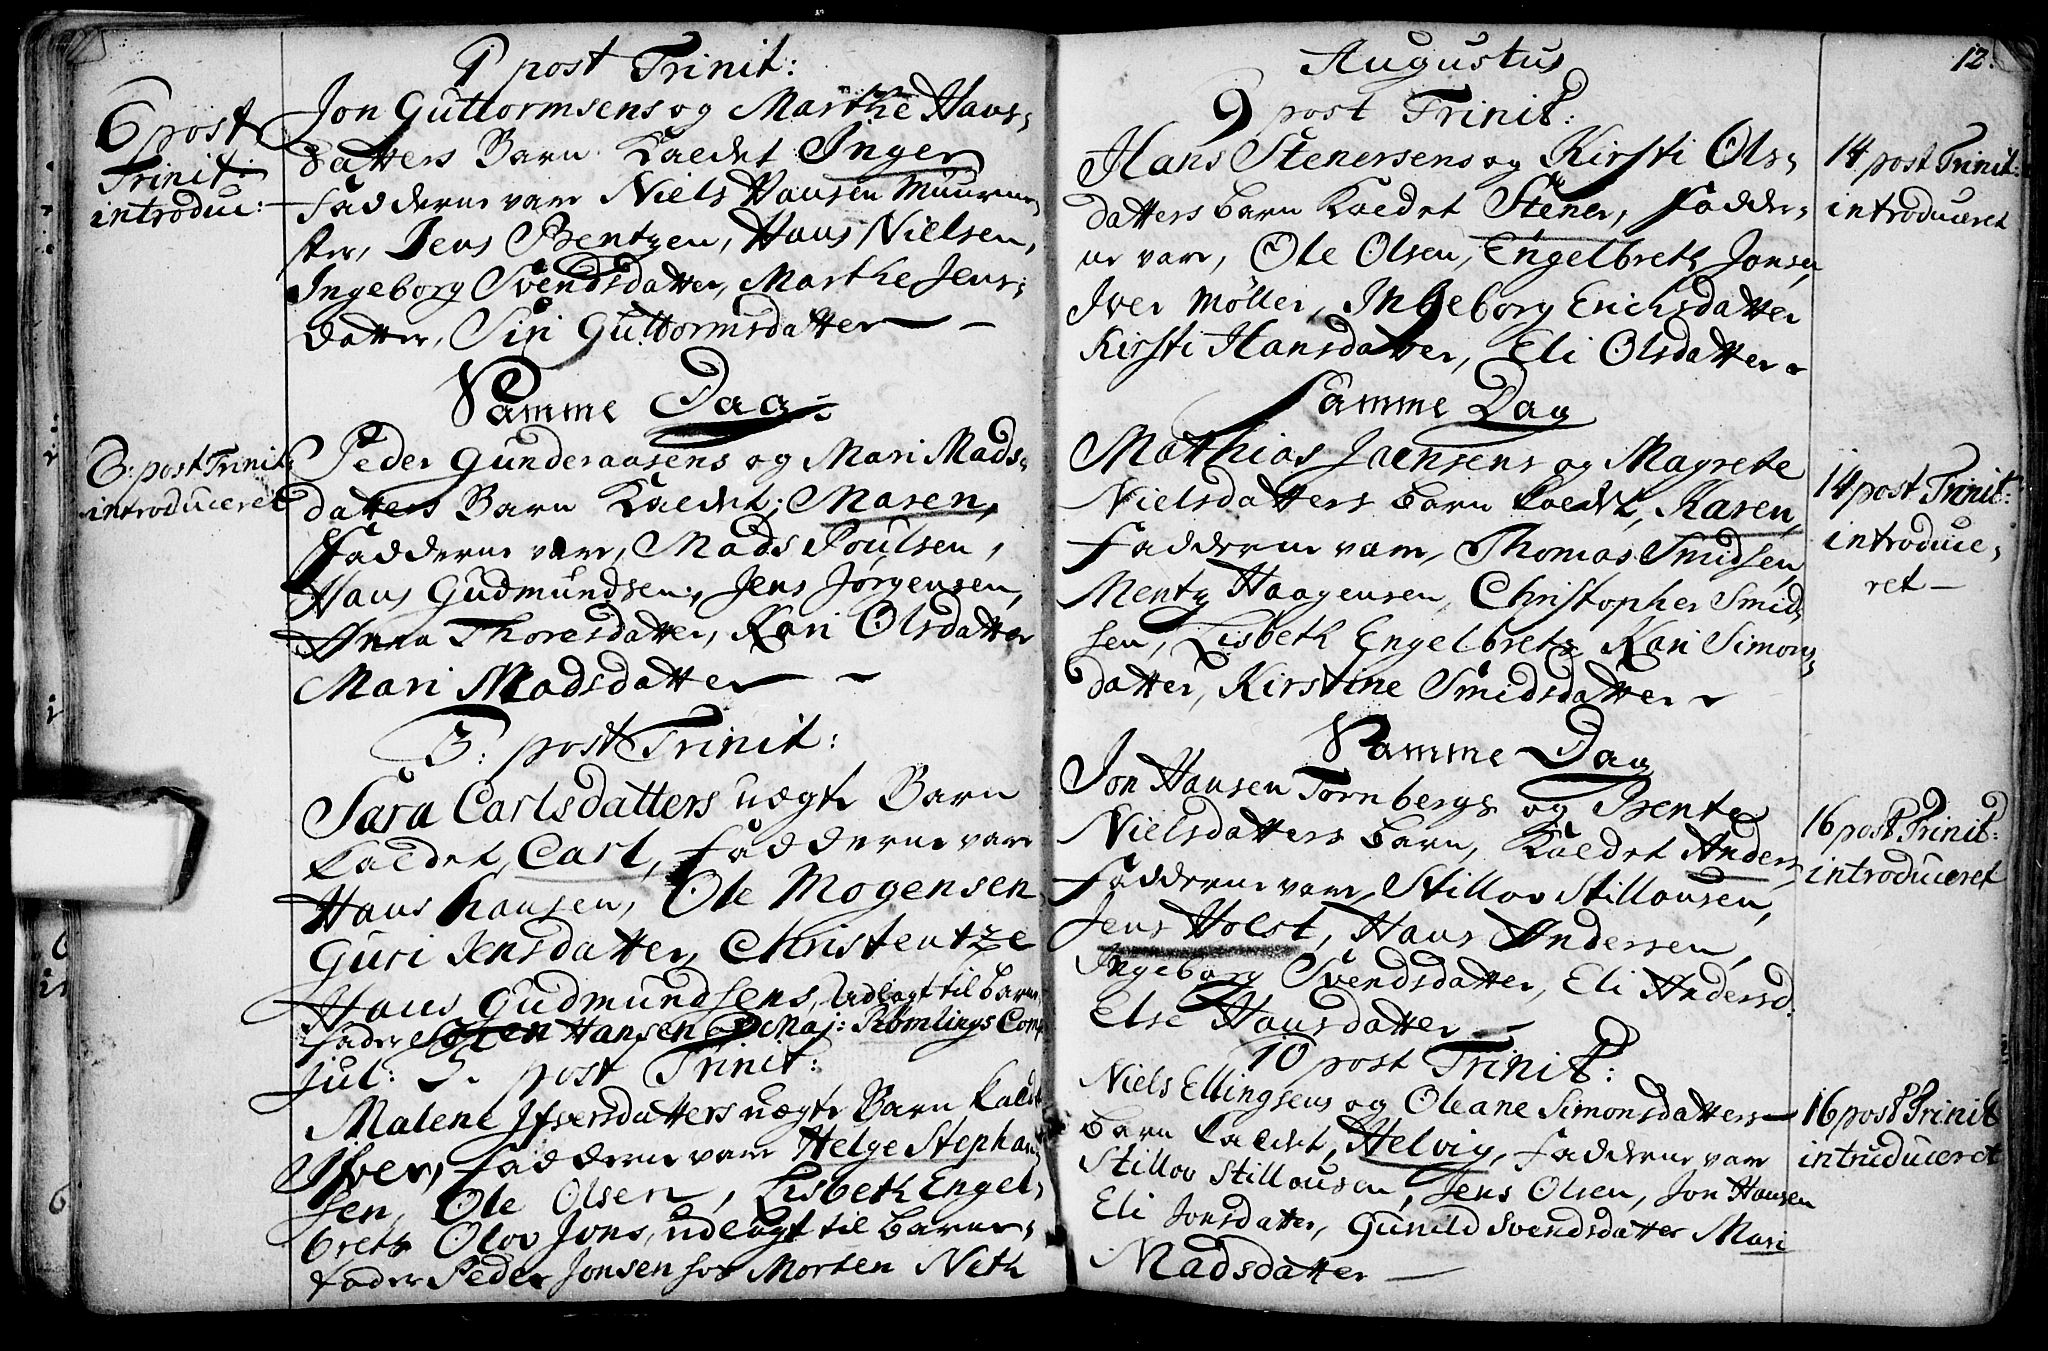 1 post Trinit:
6 post
Trinit:
introduc:
Jon Guttormsens og Marthe Hans-
datters Barn Kaldet Inger
Fadderne vare Niels Hansen Muurme-
ster, Jens Bentzen, Hans Nielsen,
Ingeborg Svendsdatter, Marthe Jens-
datter, Siri Guttormsdatter —
Samme Dag:
8: post Trinit:
introduceret
Peder Gunderaasens og Mari Mads-
datters Barn Kaldet, Maren,
Fadderne vare, Mads Poulsen,
Hans Gudmundsen, Jens Jørgensen,
Anna Thoresdatter, Kari Olsdatter
Mari Madsdatter —
3: post Trinit:
Sara Carlsdatters uægte Barn
kaldet, Carl, Fadderne vare
Hans Hansen, Ole Mogensen
Guri Jensdatter, Christentze
Hans Gudmundsens, udlagt til Barne
fader Hansen Maj: Römlings Comp
Jul: 5. post Trinit:
Malene Ifversdatters uægte Barn kaldt
Ifver, Fadderne vare Helge Stephan-
sen, Ole Olsen, Lisbeth Engel-
breth Olov Jons, udlagt til Barne-
fader Peder Jonsen hos Morten Neth
12.
Augustus
9 post Trinit:
Hans Stenersens og Kirsti Ols-
datters Barn Kaldet Stener, Fadder-
ne vare, Ole Olsen, Engelbreth Jonsen
Iver Möller, Ingeborg Erichsdatter
Kirsti Hansdatter, Eli Olsdatter
14 post Trinit:
introduceret
Samme Dag
Mathias Jensens og Magrete
Nielsdatters Barn kaldet, Karen,
Fadderne vare, Thomas Smidsen,
Mentz Haagensen, Christopher Smid-
sen, Lisbeth Engelbretz Kari Simons-
datter, Kirstine Smidsdatter
14 post Trinit:
introduce-
ret —
Samme Dag
Jon Hansen Tornbergs og Bente
Nielsdatters Barn, Kaldet Anders,
Fadderne vare, Stillov Stillousen,
Jens Holst, Hans Andersen,
Ingeborg Svendsdatter, Eli Andersd.
Else Hansdatter —
16 post Trinit:
introduceret
10 post Trinit:
Niels Ellingsens og Oleane Simonsdatters
Barn kaldet, Helvig, Fadderne vare
Stillov Stillousen, Jens Olsen, Jon Hansen
Eli Jonsdatter, Gunild Svendsdatter Mari
Madsdatter —
16 post Trinit
intruduceret